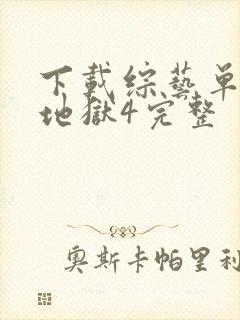 下載综藝单
地獄4完整
奥斯卡帕里利